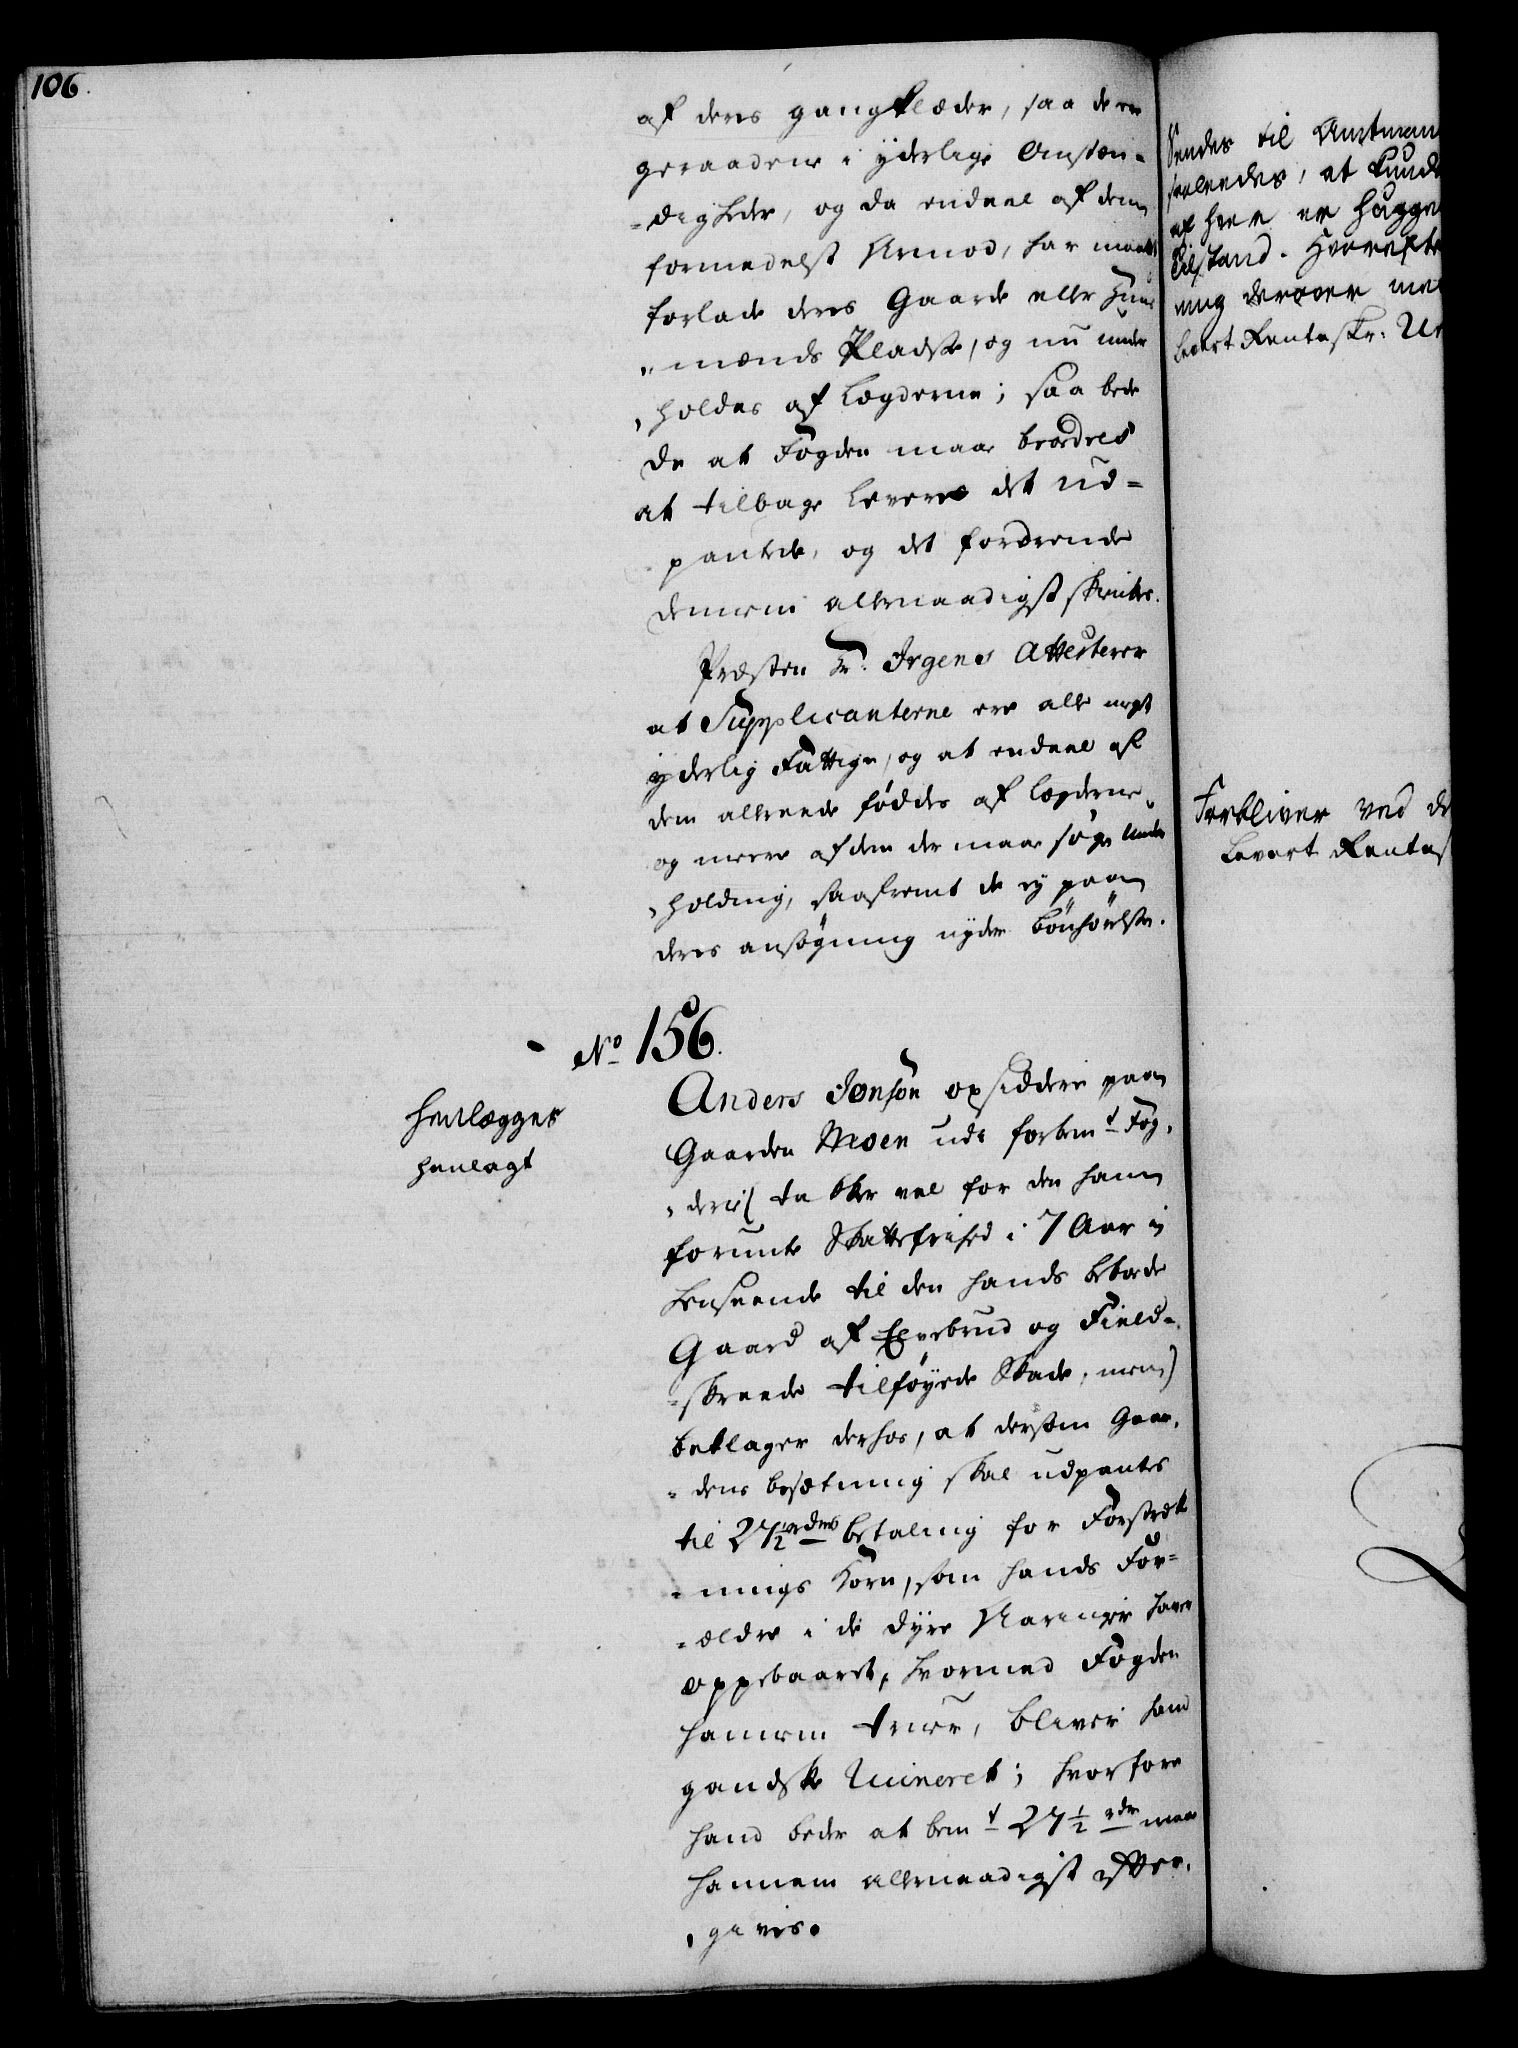 106.
af deres gangklæder, saa de ere
geraadene i yderlige Omstæn-
-digheder, og da endeel af dem
formedelst Armod, har maatt
forlade deres Gaarde eller Huus
"mænds Pladse, og nu under
"holdes af Lægderne; saa bede
de at Fogden maae beordres
at tilbage levere det ud-
pantede, og det fordrende
dennem allernaadigst skienkes.
Præsten Hr. Irgens Attesterer
at Supplicanterne ere alle meget
yderlig Fattige, og at endeel af
dem allereedeføddes af Lægderne,
og meere af dem der maae søge Under
"holding, saafremt de ey paa
deres ansøgning nyder bønhørelse.
No 156.
Henlægges
henlagt
Anders Jonsøn opsiddere paa
Gaarden Moen udi forbemt Fog,
"derie (takker vel for den ham
forunte Skattefrihed i 7 Aar i
henseende til den hands beboede
Gaard af Elvebrud og Field-
-skreede tilføyede Skade, men)
beklager derhos, at dersom Gaar,
-dens besætning skal udpantes
til 27½ rdrs betaling for Forstræk
-nings Korn, som hands For-
-ældre i de dyre Aaringer haver
oppebaaret, hvormed Fogden
hannem truer, bliver hand
gandske Ruineret; hvorfore
hand beder at bemt 27½ rdr maae
hannem allernaadigst efter,
"gives.
Sendes til Amtman
saaledes, at
af hver er
Tilstand. Hvorefter
ning derover me
Levert Renteskr:
Forbliver ved d
Levert Rentes